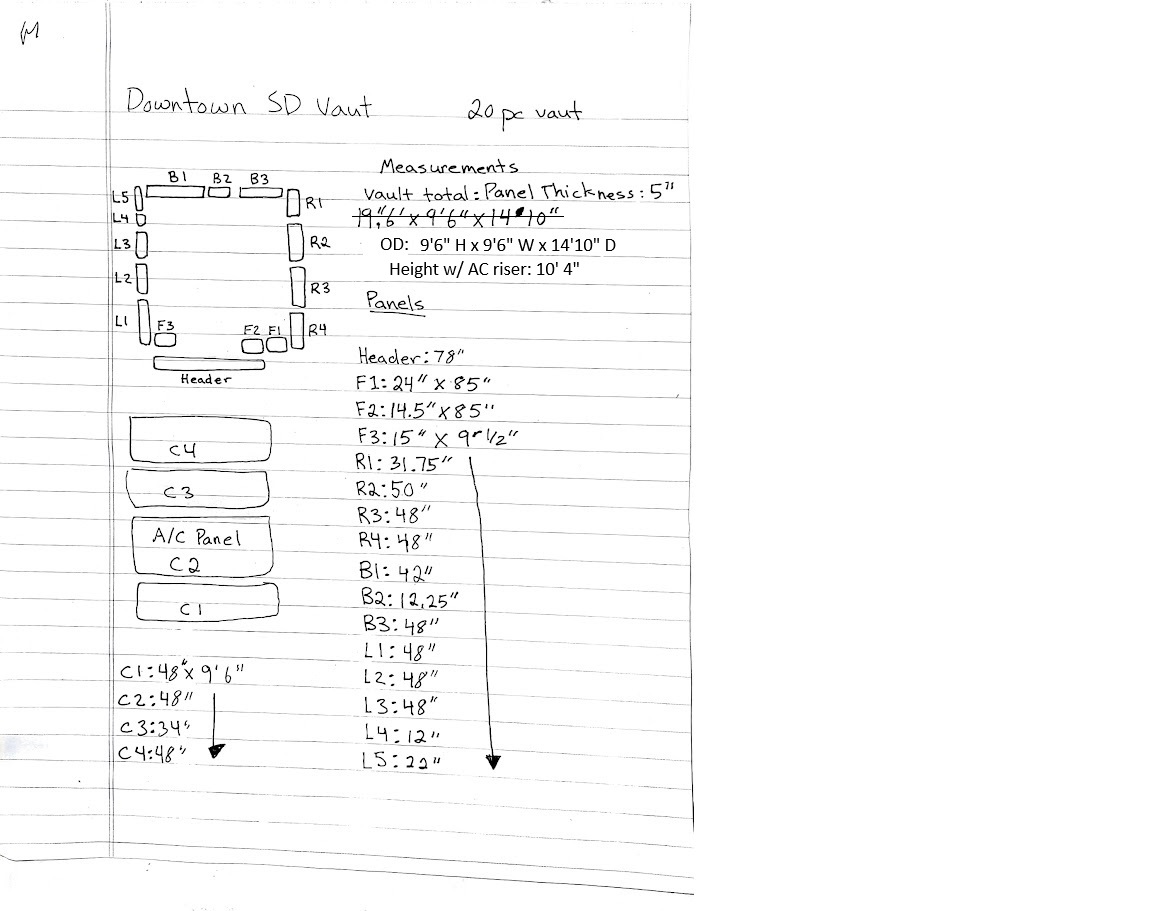 Downtown SD Vaut
20 pc vaut
Measurements
Vault total: Panel Thickness: 5"
19'6' x 9'6" x 14'10"
OD: 9'6" H x 9'6" W x 14'10" D
Height w/ AC riser: 10' 4"
B1 B2 B3
L5
R1
L4
L3
R2
L2
R3
L1
F3
F2 F1
R4
Header
Panels
Header: 78"
F1: 24" x 85"
F2: 14.5" x 85"
F3: 15" x 9' 1/2"
R1: 31.75"
R2: 50"
R3: 48"
R4: 48"
B1: 42"
B2: 12.25"
B3: 48"
L1: 48"
L2: 48"
L3: 48"
L4: 12"
L5: 22"
C4
C3
A/C Panel
C2
C1
C1: 48" x 9'6"
C2: 48"
C3: 34"
C4: 48"